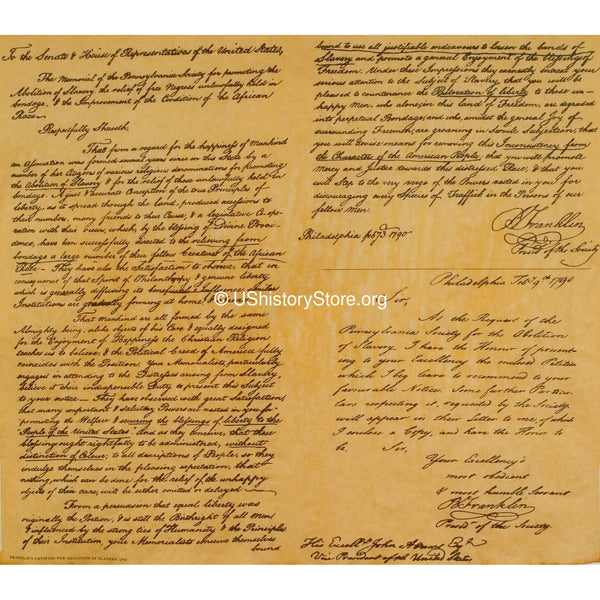 To the Senate & House of Representatives of the United States,
The Memorial of the Pennsylvania Society for promoting the
Abolition of Slavery the relief of free Negroes unlawfully held in
bondage, & the Improvement of the Condition of the African
Race—
Respectfully Sheweth,
That from a regard for the happiness of Mankind
an Association was formed several years since in this State by a
number of her Citizens of various religious denominations for promoting
the Abolition of Slavery & for the relief of those unlawfully held in
bondage. A just & accurate Conception of the true Principles of
liberty, as it spread through the land, produced accessions to
their numbers, many friends to their Cause, & a legislative Co-ope-
ration with their views, which, by the blessing of Divine Provi-
dence, have been successfully directed to the relieving from
bondage a large number of their fellow Creatures of the African
Race— They have also the Satisfaction to observe, that in
consequence of that Spirit of Philanthropy & genuine liberty
which is generally diffusing its beneficial Influence, similar
Institutions are gradually forming at home &
That mankind are all formed by the same
Almighty being, alike objects of his Care & equally designed
for the Enjoyment of Happiness the Christian Religion
teaches us to believe & the Political Creed of America fully
coincides with the Position. Your Memorialists, particularly
engaged in attending to the Distresses arising from Slavery,
believe it their indispensable Duty to present this Subject
to your notice— They have observed with great Satisfaction,
that many important & salutary Powers are vested in you for
"promoting the Welfare & securing the blessings of liberty to the
People of the United States." And as they conceive, that these
blessings ought rightfully to be administered, without
distinction of Colour, to all descriptions of People, so they
indulge themselves in the pleasing expectation, that
nothing, which can be done for the relief of the unhappy
objects of their care, will be either omitted or delayed—
From a persuasion that equal liberty was
originally the Portion, & is still the Birthright of all men
& influenced by the strong ties of Humanity & the Principles
of their Institution, your Memorialists conceive themselves
bound
FRANKLIN'S PETITION FOR ABOLITION OF SLAVERY 1790
bound to use all justifiable endeavours to loosen the bands of
Slavery and promote a general Enjoyment of the blessings of
Freedom. Under these Impressions they earnestly entreat your
serious attention to the Subject of Slavery, that you will be
pleased to countenance the Restoration of liberty to those un-
happy Men, who alone, in this land of Freedom, are degraded
into perpetual Bondage, and who, amidst the general Joy of
surrounding Freemen, are groaning in Servile Subjection, that
you will devise means for removing this Inconsistency from
the Character of the American People, that you will promote
Mercy and Justice towards this distressed Race, & that you
will Step to the very verge of the Powers vested in you for
discouraging every Species of Traffick in the Persons of our
fellow Men.
B Franklin
Presid.t of the Society
Philadelphia Feby 3. 1790
Philadelphia Feby 9th 1790
Sir,
At the Request of the
Pennsylvania Society for the Abolition
of Slavery, I have the Honour of present-
ing to your Excellency the enclosed Petition
which I beg leave to recommend to your
favourable Notice. Some further Particu-
lars respecting it, requested by the Society,
will appear in their Letter to me, of which
I enclose a Copy, and have the Honor to
be, Sir,
Your Excellency's
most obedient
& most humble Servant
B Franklin
Presidt of the Society.
His Excelly John Adams Esqr
Vice President of the United States
© UShistoryStore.org